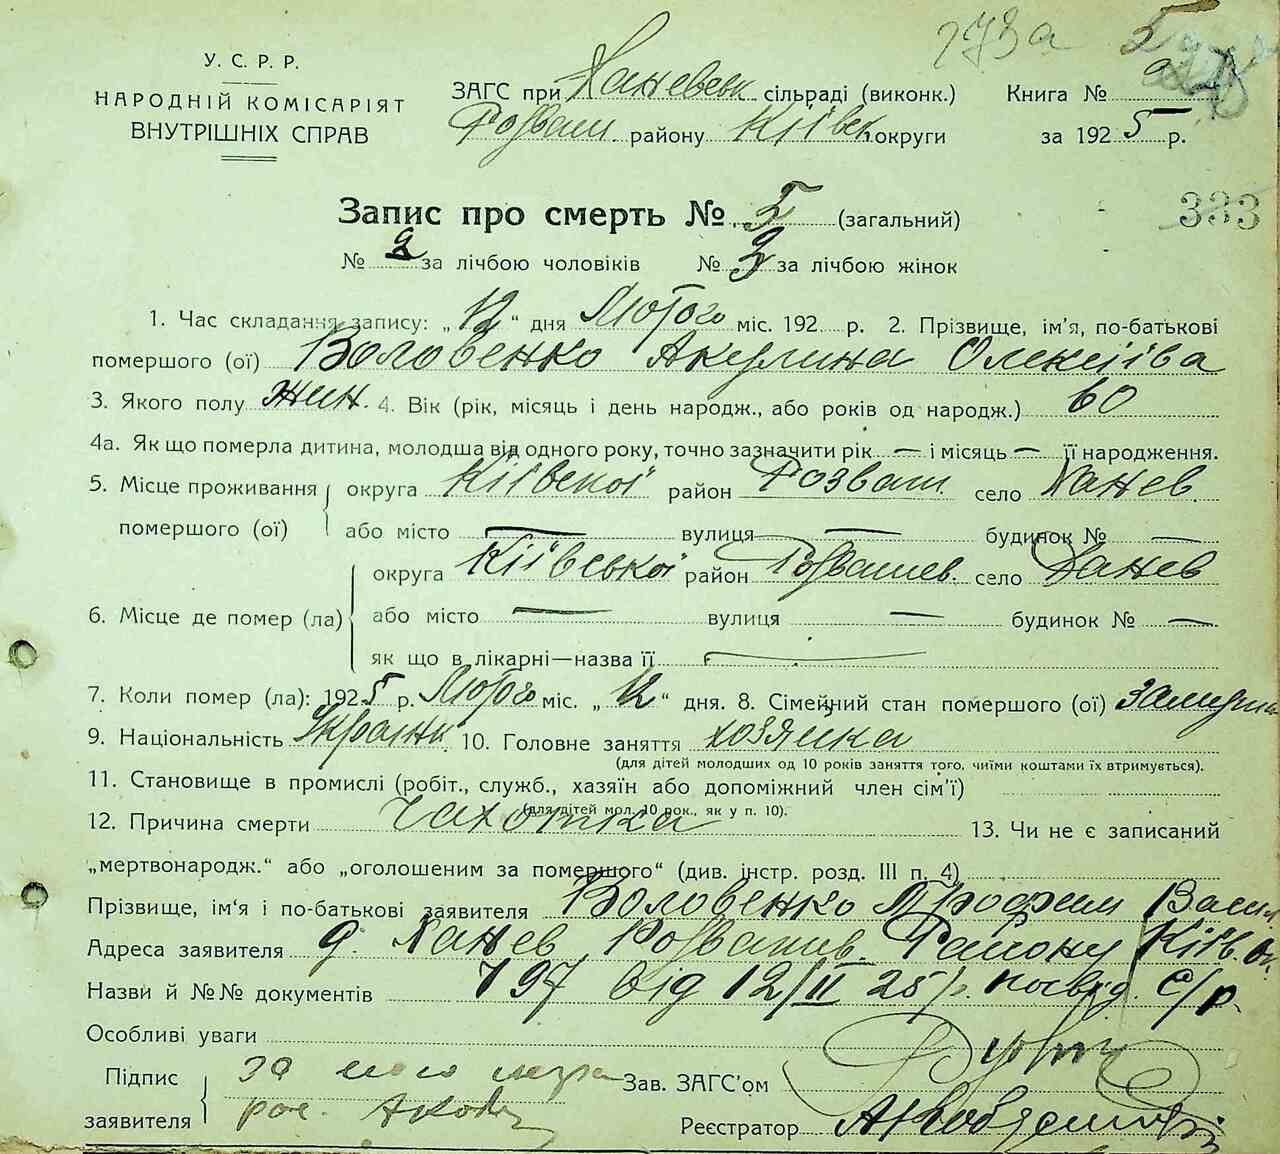 273а 5
У. С. Р. Р.
НАРОДНІЙ КОМІСАРІЯТ
ВНУТРІШНІХ СПРАВ
ЗАГС при Ханевськ сільраді (виконк.) Книга №
Розваж. району Київськ округи за 1925 р.
333
Запис про смерть № 5 (загальний)
№ 2 за лічбою чоловіків № 3 за лічбою жінок
1. Час складання запису: „12“ дня Лютого міс. 192 р. 2. Прізвище, ім'я, по-батькові
помершого (ої) Воловенко Акулина Олексіїва
3. Якого полу жин. 4. Вік (рік, місяць і день народж., або років од народж.) 60
4а. Як що померла дитина, молодша від одного року, точно зазначити рік — і місяць — її народження.
5. Місце проживання округа Київської район Розваж. село Ханев.
помершого (ої) або місто — вулиця — будинок № —
округа Київської район Розважев. село Ханев
6. Місце де помер (ла) або місто — вулиця — будинок № —
як що в лікарні—назва її —
7. Коли помер (ла): 1925 р. Лютого міс. „12“ дня. 8. Сімейний стан помершого (ої) замужня
9. Національність Українк 10. Головне заняття хозяйка
(для дітей молодших од 10 років заняття того, чиїми коштами їх втримується).
11. Становище в промислі (робіт., служб., хазяїн або допоміжний член сім'ї)
(для дітей мол. 10 рок., як у п. 10).
12. Причина смерти Чахотка 13. Чи не є записаний
„мертвонародж.“ або „оголошеним за помершого“ (див. інстр. розд. III п. 4)
Прізвище, ім'я і по-батькові заявителя Воловенко Трофим Васил
Адреса заявителя д. Ханев Розважив. Району Київ. ок.
Назви й №№ документів 797 від 12/II 25 р. посвід. С/р.
Особливі уваги
Підпис За
заявителя рос.
Зав. ЗАГС'ом
Реєстратор